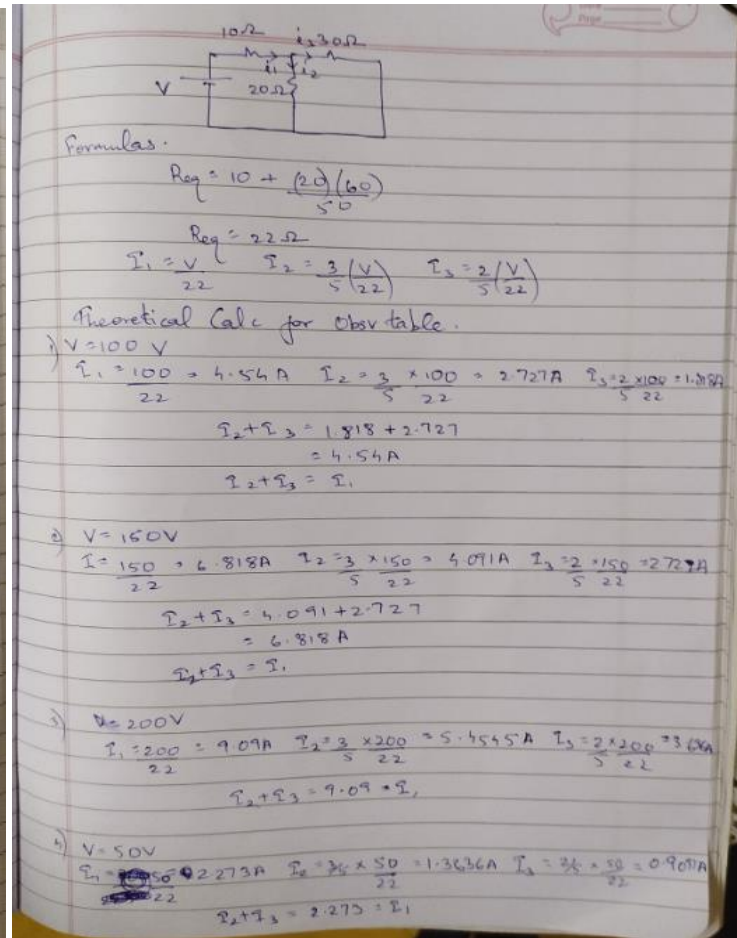 Page
10Ω i3 30Ω
i1 i2
V 20Ω
Formulas.
Req = 10 + (20)(60)/50
Req = 22Ω
I1 = V/22 I2 = 3/5 (V/22) I3 = 2/5 (V/22)
Theoretical Calc for Obsv table.
1) V=100 V
I1 = 100/22 = 4.54 A I2 = 3/5 × 100/22 = 2.727A I3 = 2/5 × 100/22 = 1.818A
I2+I3 = 1.818 + 2.727
= 4.54A
I2+I3 = I1
2) V = 150V
I = 150/22 = 6.818A I2 = 3/5 × 150/22 = 4.091A I3 = 2/5 × 150/22 = 2.727A
I2+I3 = 4.091+2.727
= 6.818 A
I2+I3 = I1
3) V = 200V
I1 = 200/22 = 9.09A I2 = 3/5 × 200/22 = 5.4545A I3 = 2/5 × 200/22 = 3.636A
I2+I3 = 9.09 = I1
4) V = 50V
I1 = 50/22 = 2.273A I2 = 3/5 × 50/22 = 1.3636A I3 = 2/5 × 50/22 = 0.9091A
I2+I3 = 2.273 = I1